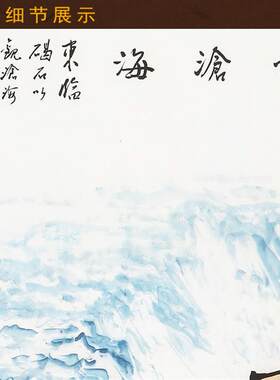 细节展示
滄海
東臨
碣石以
觀滄海